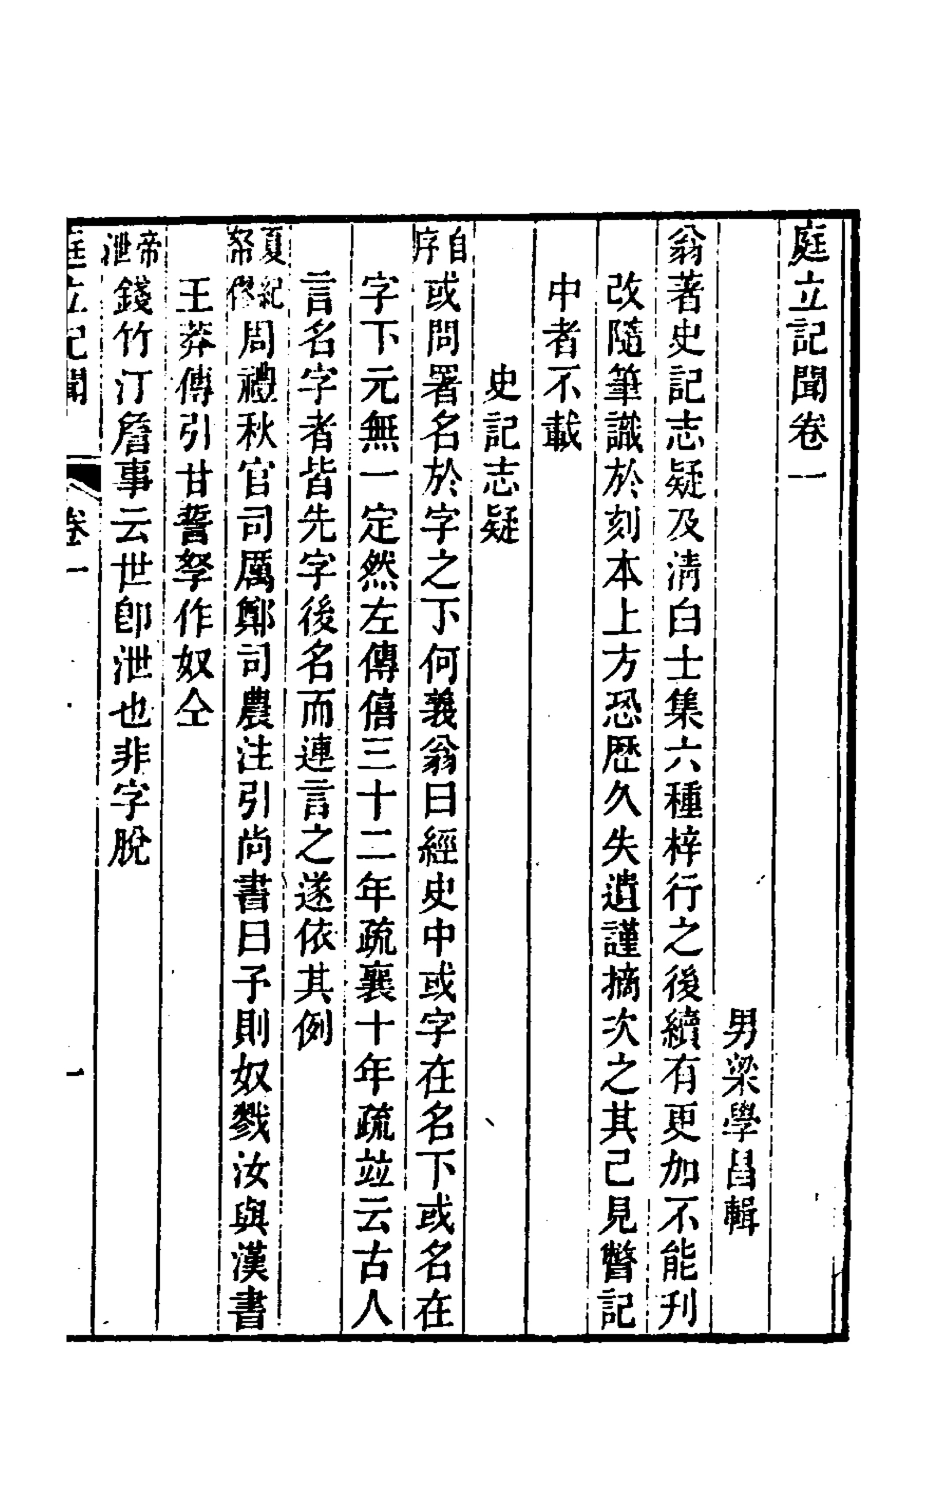 庭立記聞卷一
男梁學昌輯
翁著史記志疑及清白士集六種梓行之後續有更加不能刋
改隨筆識於刻本上方恐歷久失遺謹摘次之其己見瞥記
中者不載
史記志疑
自序或問署名於字之下何義翁曰經史中或字在名下或名在
字下元無一定然左傳僖三十二年疏襄十年疏竝云古人
言名字者皆先字後名而連言之遂依其例
夏紀帑僇周禮秋官司厲鄭司農注引尚書曰予則奴戮汝與漢書
王莽傳引甘誓孥作奴仝
帝泄錢竹汀詹事云世卽泄也非字脫
庭立記聞 卷一 一